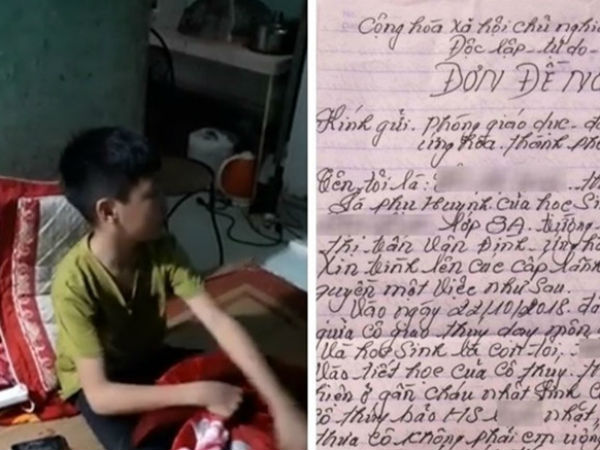 Cộng hòa xã hội chủ nghĩa
Độc lập - tự do -
ĐƠN ĐỀ NG
Kính gửi. Phòng giáo dục - đà
ứng hòa. thành phố
Tên tôi là:
Là phụ Huynh của học Sin
lớp 8A. trường
thị trấn Vân Đình, ứng hò
Xin trình lên các cấp lãnh
quyền một việc như Sau.
Vào ngày 22/10/2018. đã
giữa cô giáo thủy dạy môn
và học Sinh là con tôi.
Vào tiết học của cô thủy. th
hiên ở gần cháu nhất
cô thủy bảo HS nhất
thưa cô không phải em